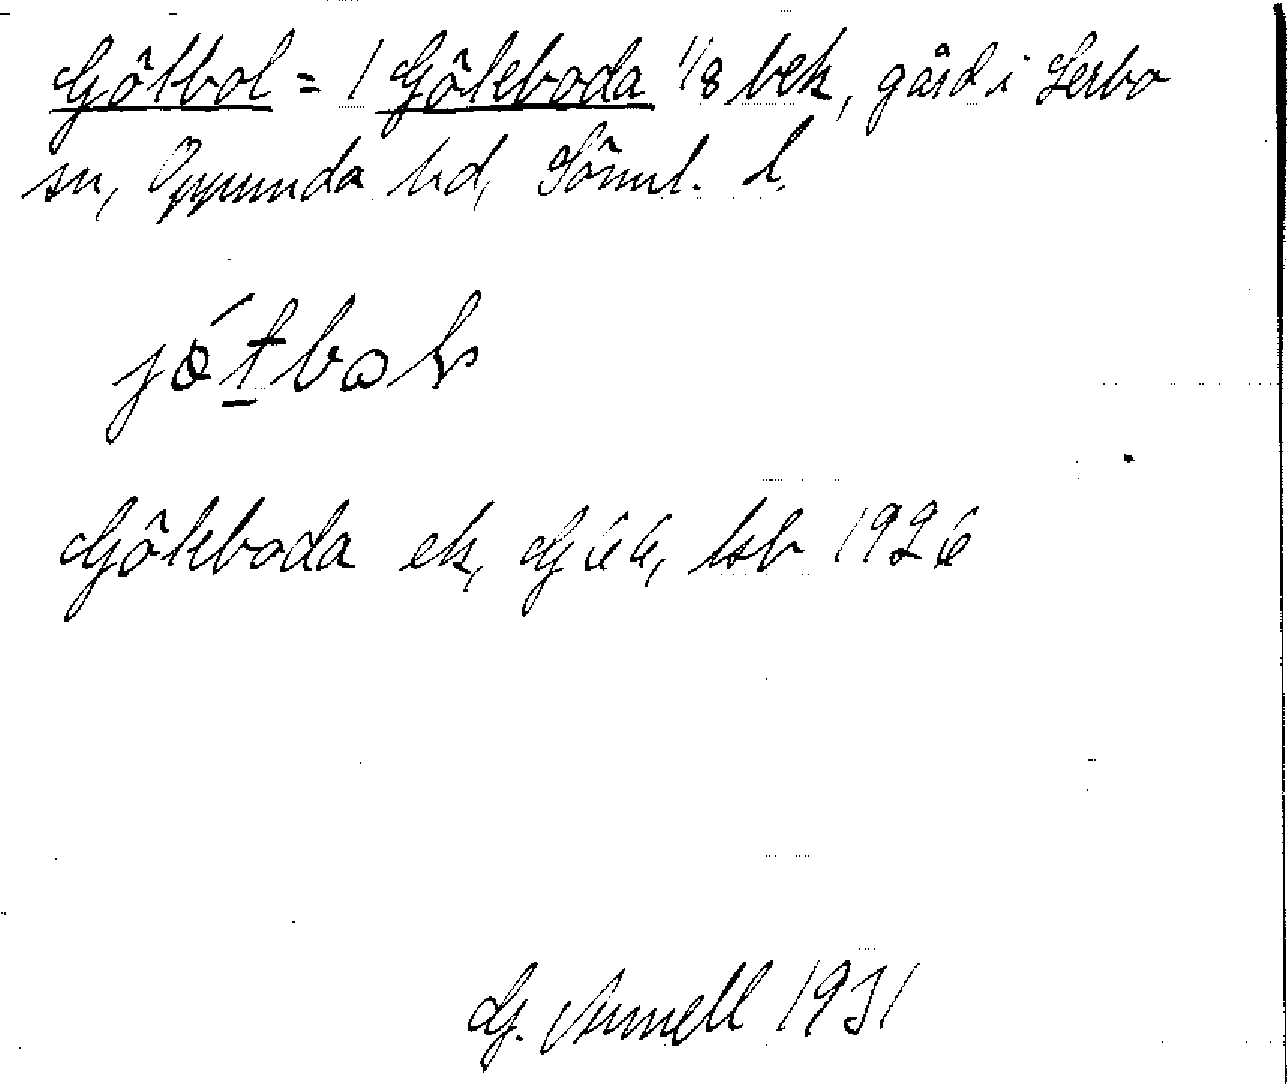 Götbol = 1 Göteboda 1/8 bek, gård i Lerbo
sn, Oppunda hd, Söml. l.
jö́t̲bo
Göteboda ek, GJ 66, lsb 1926
G. 1931